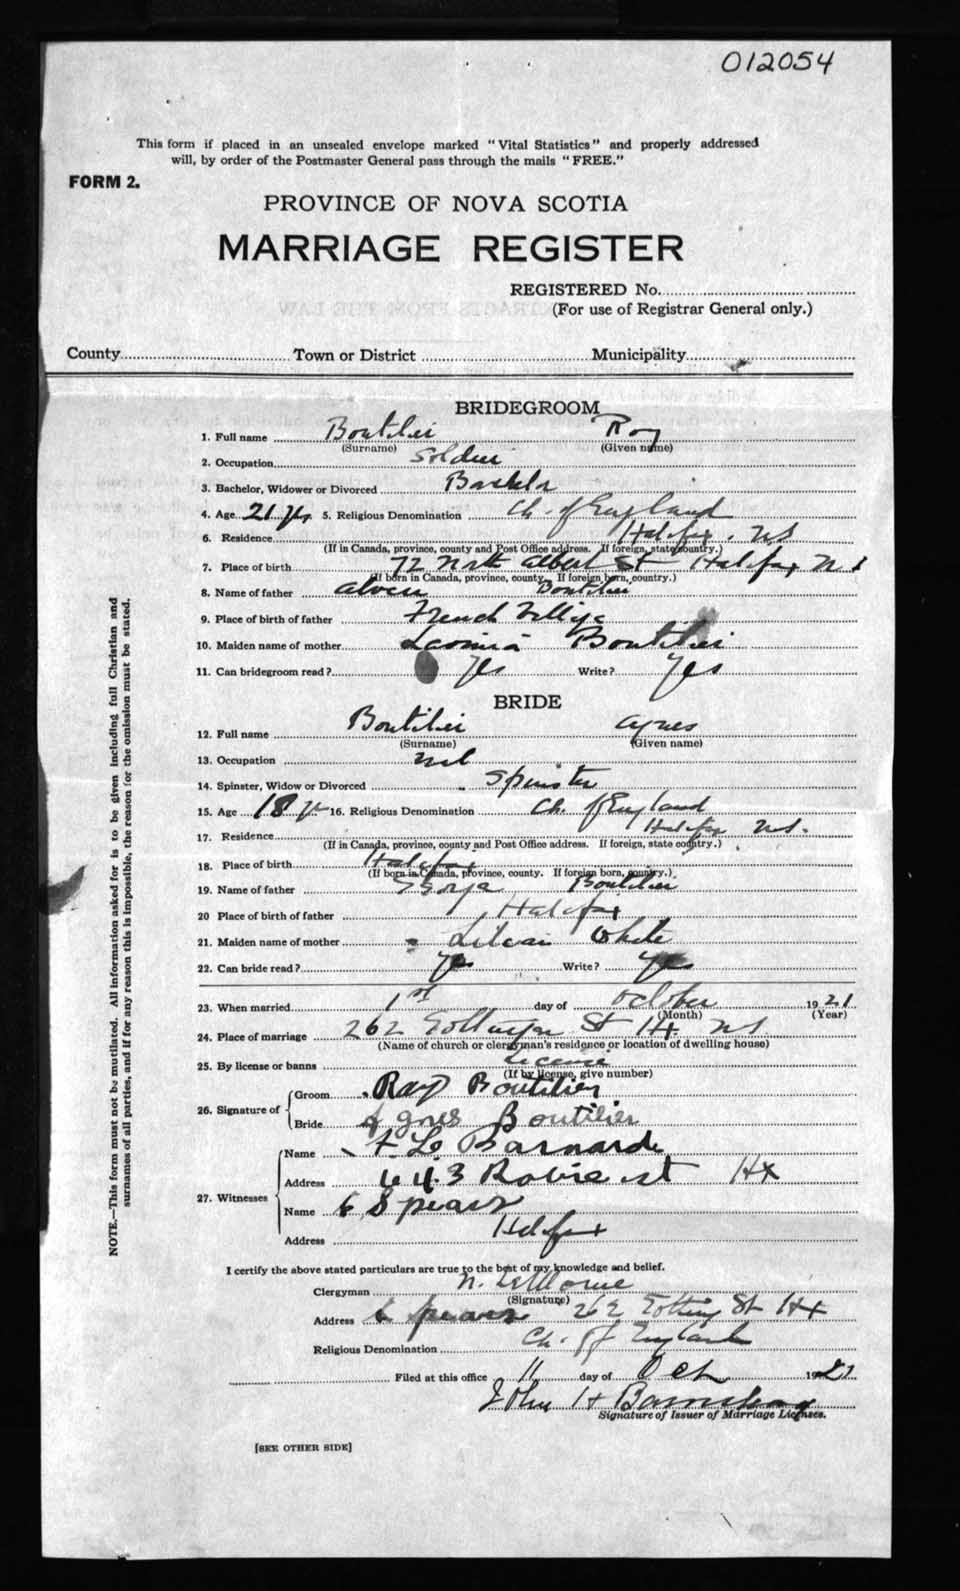 012054
This form if placed in an unsealed envelope marked "Vital Statistics" and properly addressed
will, by order of the Postmaster General pass through the mails "FREE."
FORM 2.
PROVINCE OF NOVA SCOTIA
MARRIAGE REGISTER
REGISTERED No.
(For use of Registrar General only.)
County Town or District Municipality
BRIDEGROOM
1. Full name Boutilier Roy
(Surname) (Given name)
2. Occupation Soldier
3. Bachelor, Widower or Divorced Bachelor
4. Age 21 yrs 5. Religious Denomination Ch. of England
6. Residence Halifax. NS
(If in Canada, province, county and Post Office address. If foreign, state country.)
7. Place of birth 72 North Albert St Halifax NS
(If born in Canada, province, county. If foreign born, country.)
8. Name of father Boutilier
9. Place of birth of father French Village
10. Maiden name of mother Boutilier
11. Can bridegroom read? Yes Write? Yes
BRIDE
12. Full name Boutilier Agnes
(Surname) (Given name)
13. Occupation nil
14. Spinster, Widow or Divorced Spinster
15. Age 18 yr 16. Religious Denomination Ch. of England
17. Residence Halifax NS.
(If in Canada, province, county and Post Office address. If foreign, state country.)
18. Place of birth Halifax
(If born in Canada, province, county. If foreign born, country.)
19. Name of father George Boutilier
20 Place of birth of father Halifax
21. Maiden name of mother White
22. Can bride read? Yes Write? Yes
23. When married 1st day of October 1921
(Month) (Year)
24. Place of marriage 262 Gottingen St Hx. NS
(Name of church or clergyman's residence or location of dwelling house)
25. By license or banns License
(If by license, give number)
26. Signature of Groom Ray Boutilier
Bride Agnes Boutilier
27. Witnesses Name Barnard
Address 643 Robie st Hx
Name Spears
Address Halifax
I certify the above stated particulars are true to the best of my knowledge and belief.
Clergyman N.
(Signature)
Address Spears 262 St Hx
Religious Denomination Ch. of England
Filed at this office 11 day of Oct 1921
John H
Signature of Issuer of Marriage Licenses.
[SEE OTHER SIDE]
NOTE.—This form must not be mutilated. All information asked for is to be given including full Christian and
surnames of all parties, and if for any reason this is impossible, the reason for the omission must be stated.